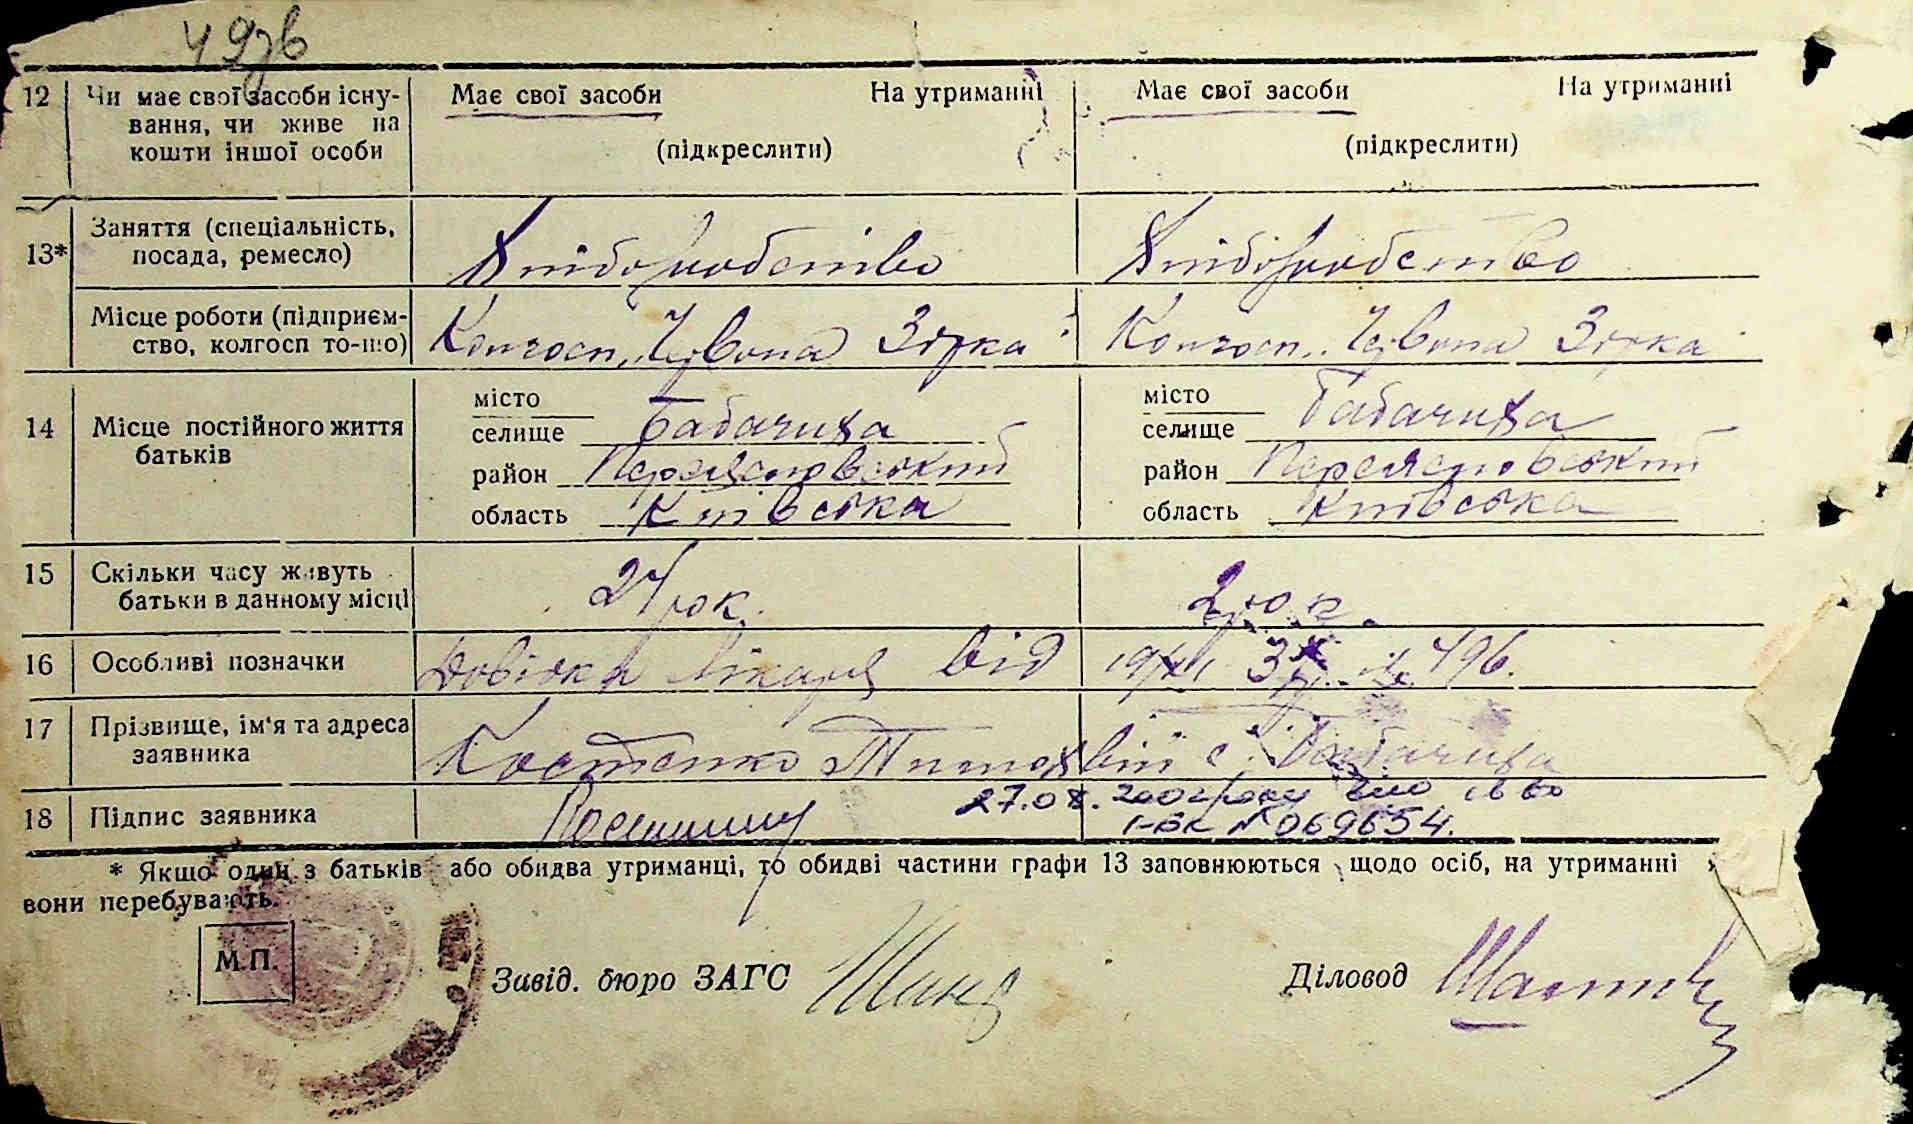 12 Чи має свої засоби існу-
вання, чи живе на
кошти іншої особи
Має свої засоби На утриманні
(підкреслити)
Має свої засоби На утриманні
(підкреслити)
13* Заняття (спеціальність,
посада, ремесло)
Хліборобство
Хліборобство
Місце роботи (підприєм-
ство, колгосп то-що)
Колгосп „Червона Зірка"
Колгосп „Червона Зірка"
14 Місце постійного життя
батьків
місто
селище Бабачиха
район Переяславський
область Київська
місто
селище Бабачиха
район Переяславський
область Київська
15 Скільки часу живуть
батьки в данному місці
24 рок.
2 рок.
16 Особливі позначки
Довідка лікаря від № 496.
17 Прізвище, ім'я та адреса
заявника
Костенко с. Бабачиха
18 Підпис заявника
27.08.2002 року
І-БК № 069654.
* Якщо один з батьків або обидва утриманці, то обидві частини графи 13 заповнюються щодо осіб, на утриманні
вони перебувають.
М.П.
Завід. бюро ЗАГС
Діловод